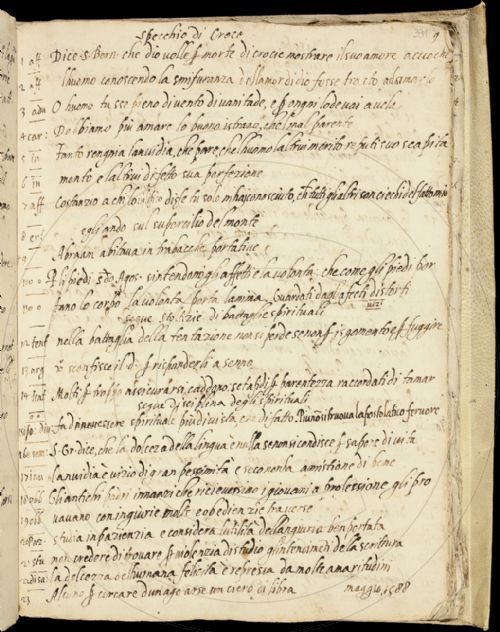 Specchio di Croce
391 9
1 aff Dice .S. Bern. che dio volle p morte di croce mostrare il suo amore accioche
2 aff lhuomo conoscendo la smisuranza dellamor di dio fosse tratto ad amarlo
3 adu O huomo tu sse pieno di vento di vanitade, e p ogni lode vai a vela
4 car: Dobbiamo più amare lo buono istrano, che l mal parente
5 in Tanto rengnia lanvidia, che pare, che lhuomo laltrui merito reputi suo scapita
6 in mento e laltrui difetto sua perfezione
7 aff Costanzio a disse tu solo mhai conosciuto, tutti gli altri son ciechi del fatto mio
segli ando sul supercilio del monte
8 er: Abraam abitava in trabacche portative
Pli piedi sdo Agos. sintendono gli affetti e la volonta, che come gli piedi por
tano lo corpo la volonta porta lanima Guardati dagli afecti distorti
vizi
segue stolizie di battaglie spirituali
12 tent nella battaglia della tentazione non si perde se non p isgomento e p fuggire
13 arg sconfisse il d. p risponderli a senno
14 Molti p troppo assicurarsi, caddono, se ta fidi p parentezza raccordati di tamar
segue disciplina degli spirituali
15 fa di necessere spirituale piu di vista, che di fatto. Piu non si truova la fostolatico fervore
16 sem: S. Gr. dice, che la dolceza della lingua e nulla se non si condisce p sapore di vita
17 inv lanvidia e vizio di gran pessimità e se conon ha amistione di bene
18 gli antichi padri innanzi che ricievessino i giovani a professione gli pro
19 vavano con ingiurie molte e obedienzie traverse
20 Paz: studia in pazienzia e considera lutilita dellangiuria ben portata
21 stu non credere di trovare p violenzia di studio glintendimenti della scrittura
22 la dolcezza dellhumana felicita e represa da molte amaritudini
23 Alcuno p cercare dunago arse un ciero di libra maggio, 1588